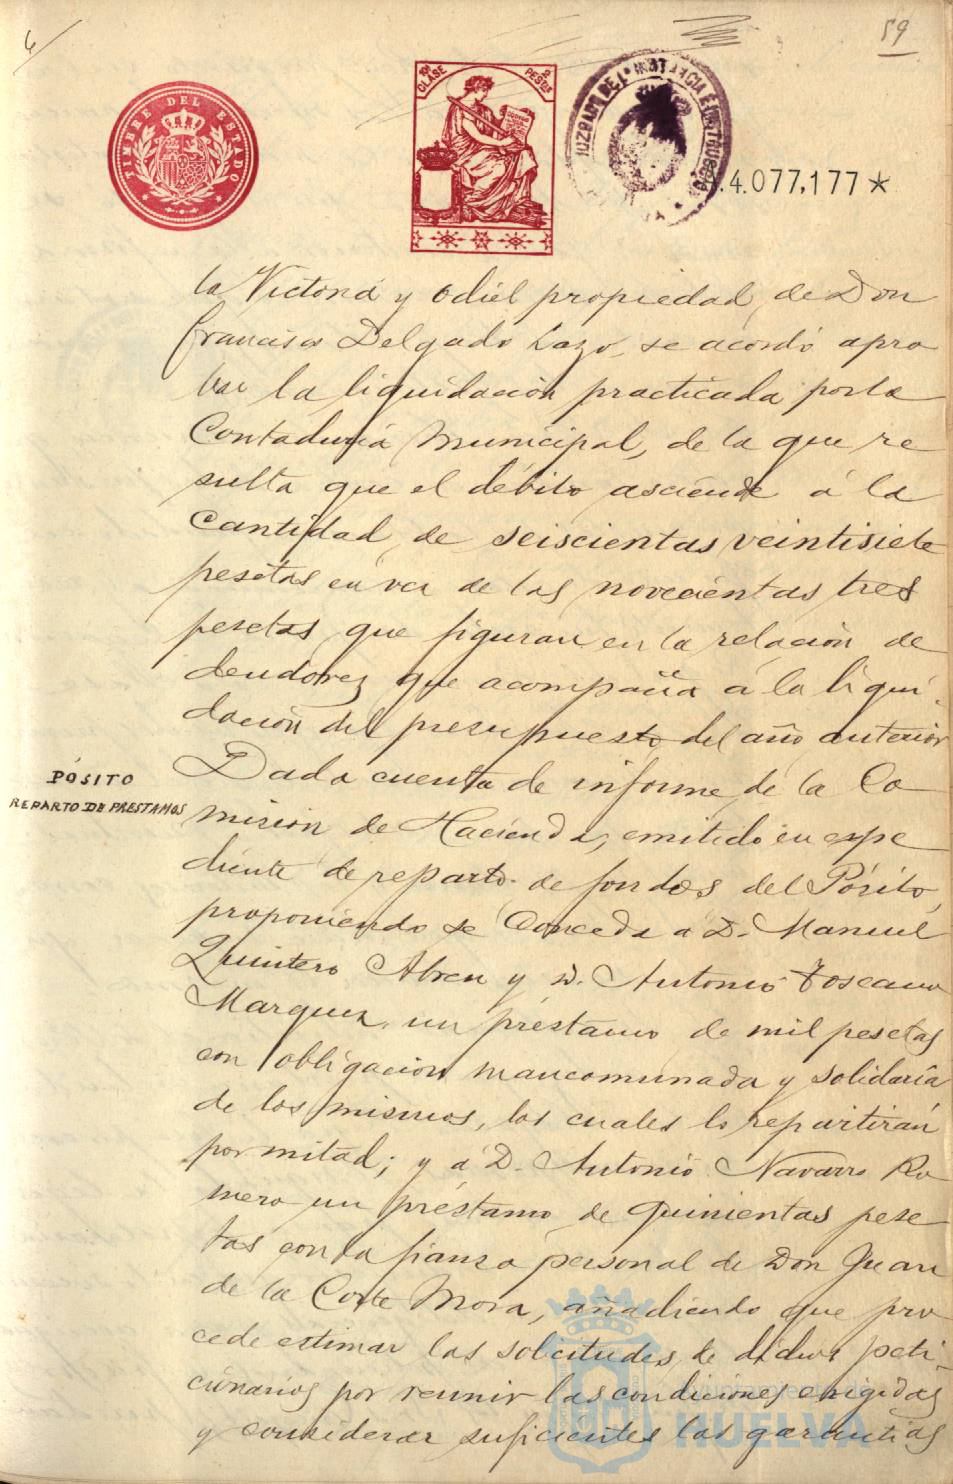 6
59
TIMBRE DEL ESTADO
10ª CLASE
2 PESETAS
JUZGADO DE 1ª INSTANCIA E INSTRUCCION
4.077,177 *
la Victoria y Odiel propiedad de Don
Francisco Delgado Lazo, se acordó apro
bar la liquidación practicada por la
Contaduría Municipal, de la que re
sulta que el débito asciende á la
cantidad de seiscientas veintisiete
pesetas en vez de las novecientas tres
pesetas que figuran en la relación de
deudores que acompaña á la liqui
dación del presupuesto del año anterior
PÓSITO
REPARTO DE PRESTAMOS
Dada cuenta de informe de la Co
misión de Hacienda, emitido en expe
diente de reparto de fondos del Pósito,
proponiendo se conceda a D. Manuel
Quintero Abreu y D. Antonio Toscano
Marquez un préstamo de mil pesetas
con obligación mancomunada y solidaria
de los mismos, los cuales lo repartirán
por mitad; y á D. Antonio Navarro Ro
mero un préstamo de quinientas pese
tas con la fianza personal de Don Juan
de la Corte Mora, añadiendo que pro
cede estimar las solicitudes de dichos peti-
cionarios por reunir las condiciones exigidas
y considerar suficientes las garantías
Ayuntamiento de
HUELVA